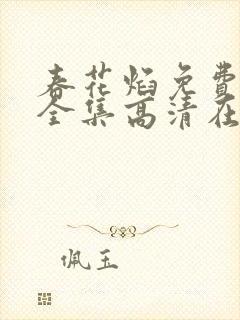 春花焰免費
全集高清在
佩玉